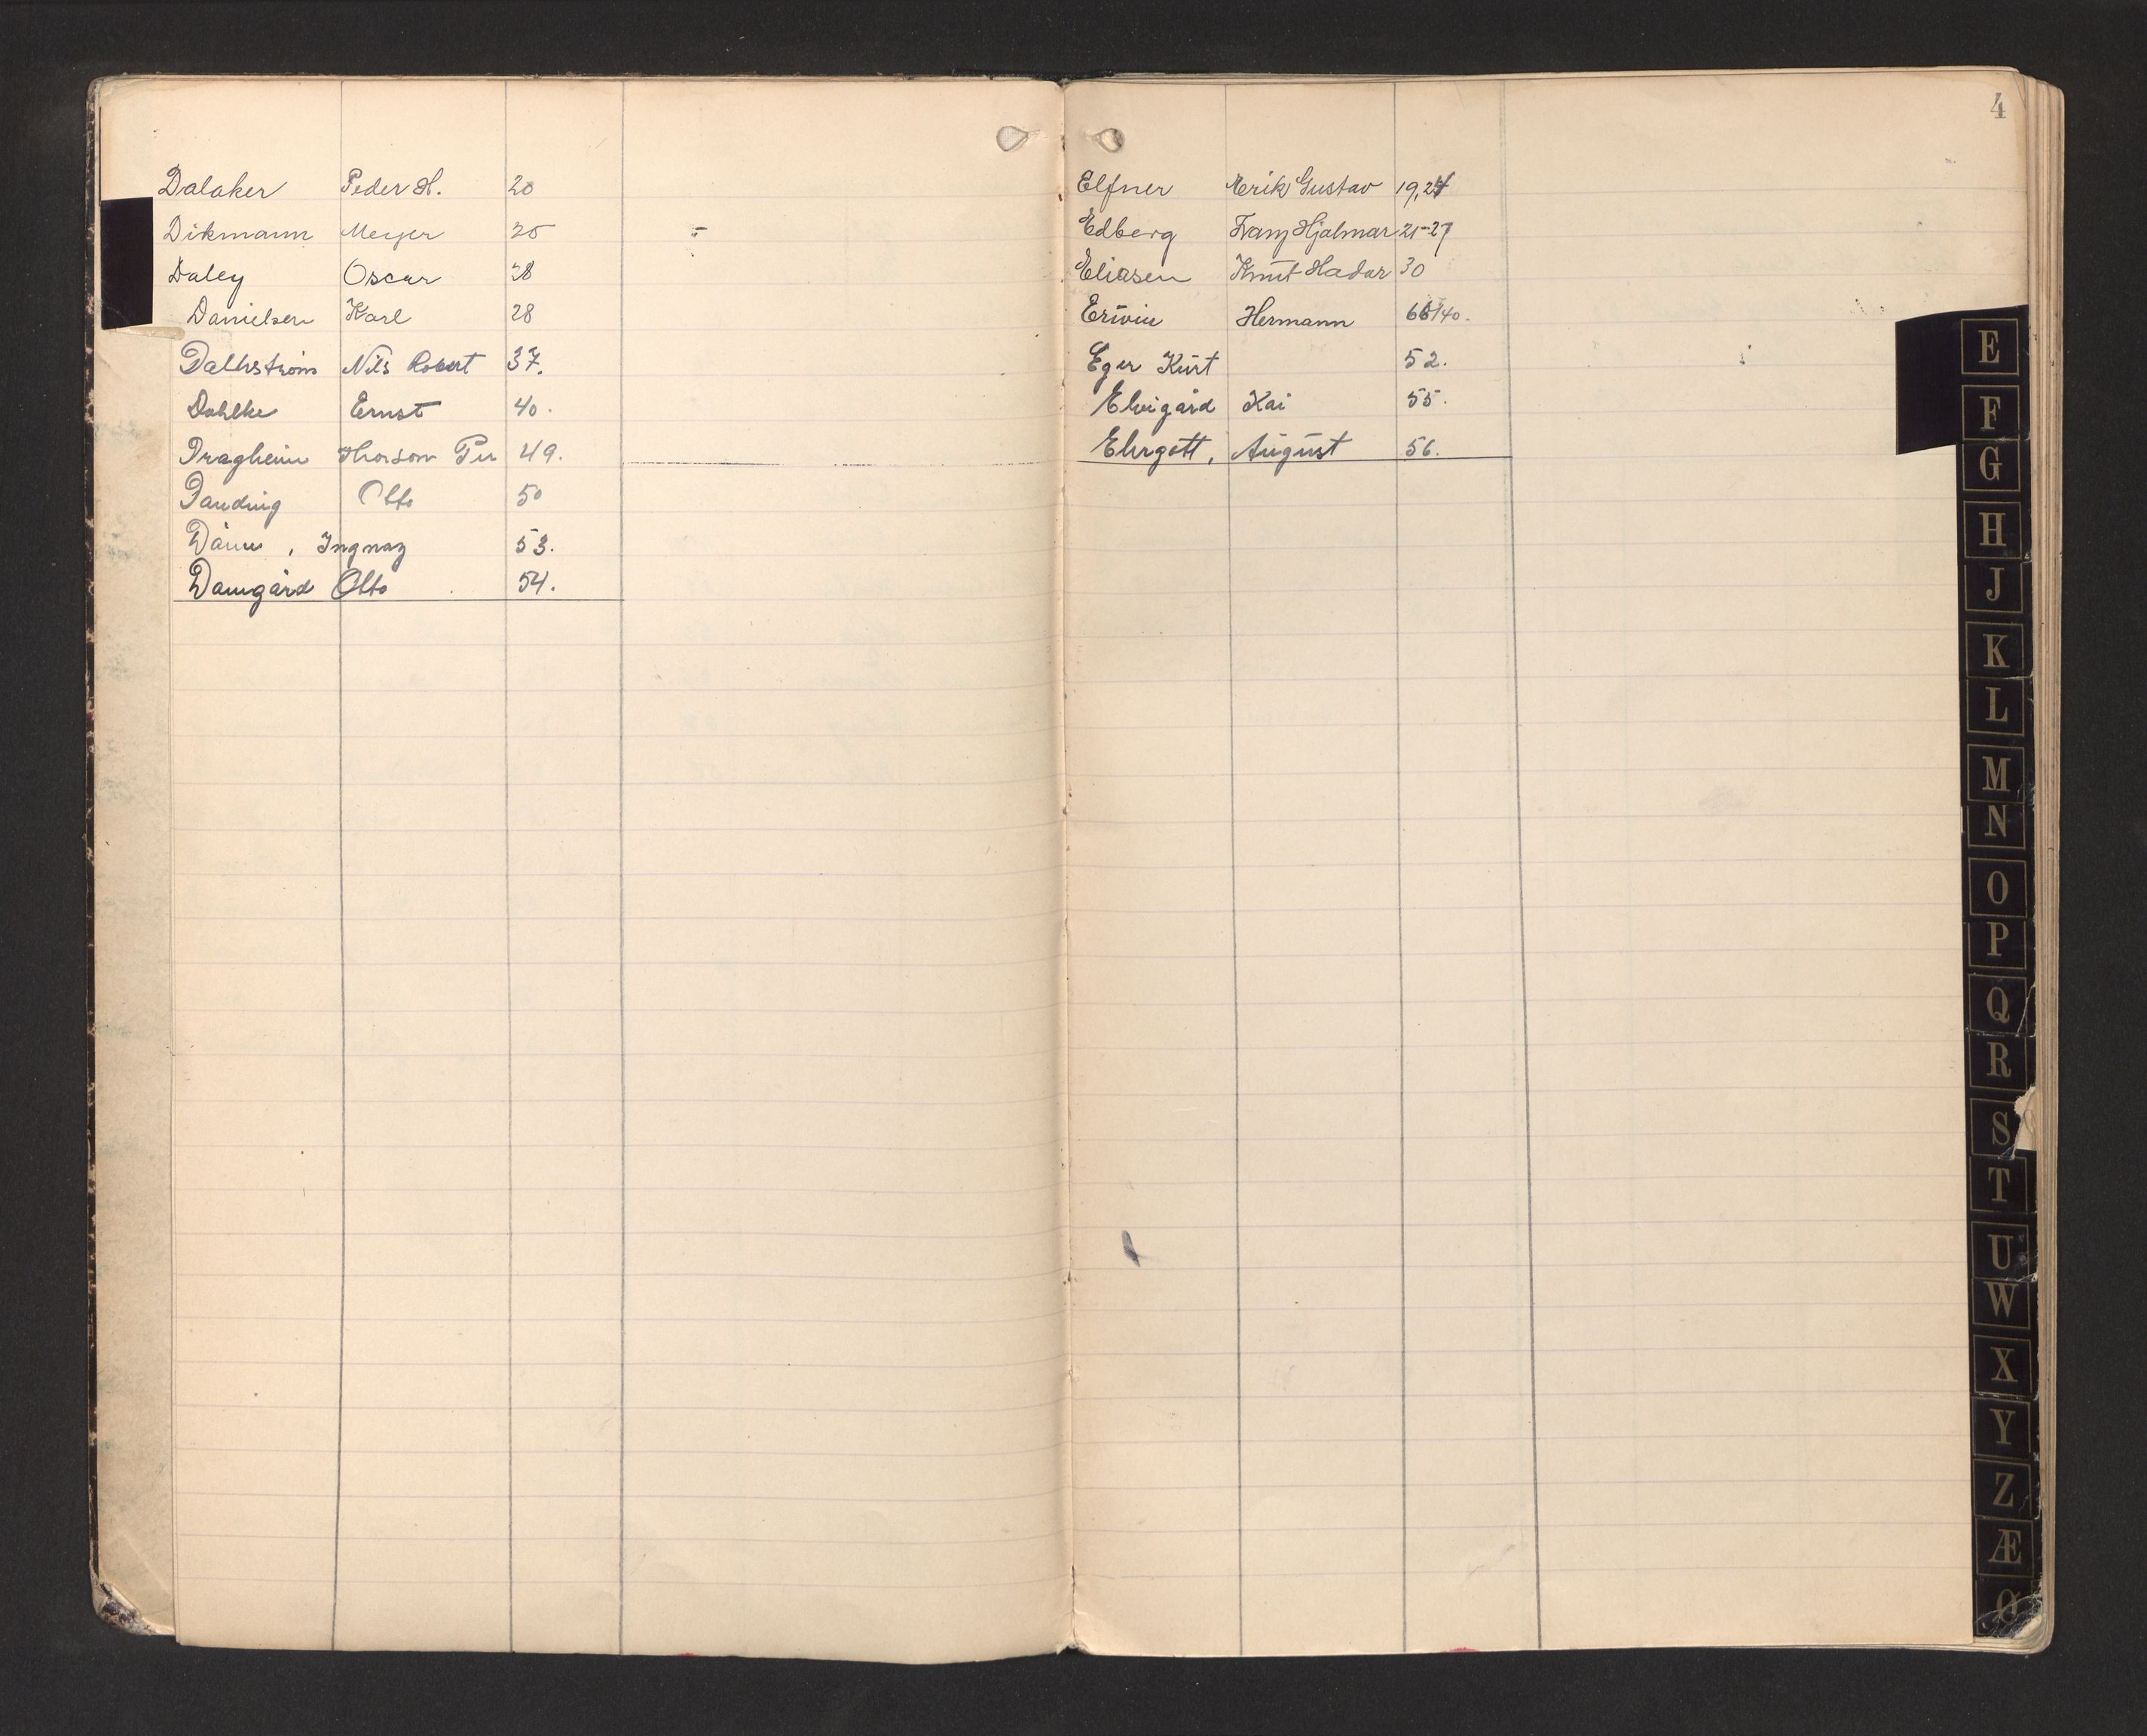 Dalaker Peder H. 20
Dikmann Meyer 25
Daley Oscar 28
Danielsen Karl 28
Dalhstrøm Nils Robert 37.
Dahlke Ernst 40.
Dragheim Thorson Per 49.
Danding Otto 50
Ingnaz 53.
Damgård Otto 54.
4
Elfner Erik Gustav 19,24
Edberg Franz Hjalmar 21-27
Eliasen Knut Hadar 30
Erwin Hermann
Eger Kurt 52.
Elvigård Kai 55.
Ehrgott, August 56.
E
F
G
H
J
K
L
M
N
O
P
Q
R
S
T
U
W
X
Y
Z
Æ
Ø